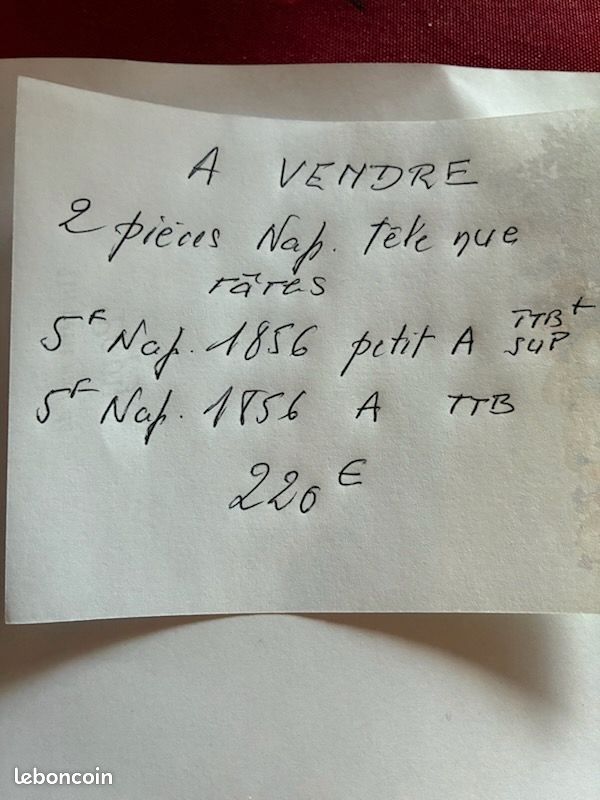 A VENDRE
2 pièces Nap. Tête nue
râres
5F Nap. 1856 petit A TTB+ SUP
5F Nap. 1856 A TTB
220 €
leboncoin